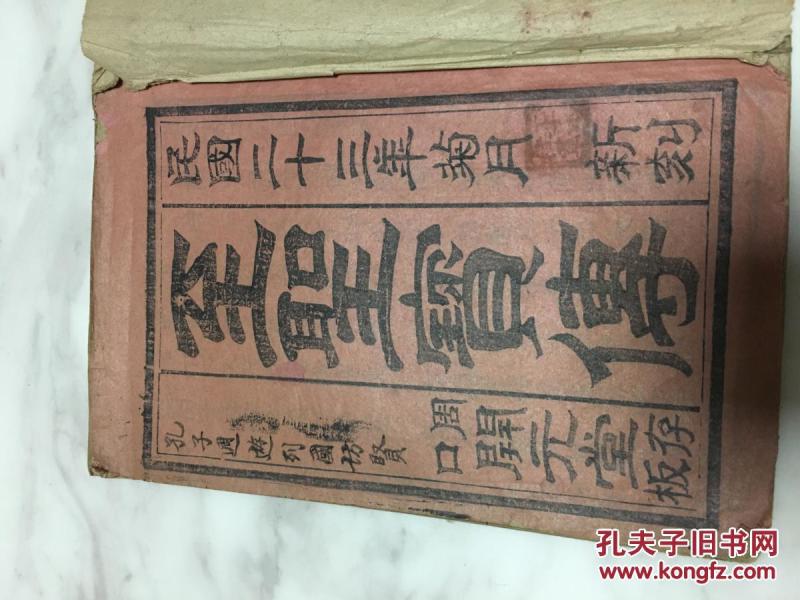 民國二十三年菊月 新刻
至聖寶傳
孔子週遊列國訪賢
周口開元堂存板
孔夫子旧书网
www.kongfz.com